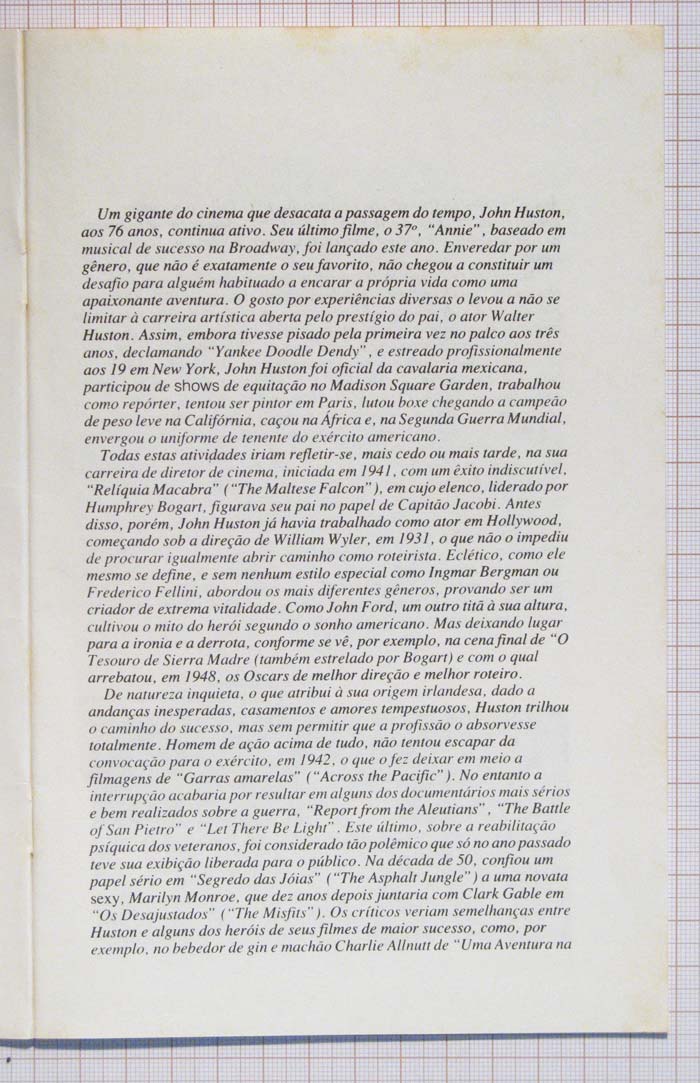 Um gigante do cinema que desacata a passagem do tempo, John Huston,
aos 76 anos, continua ativo. Seu último filme, o 37º, “Annie”, baseado em
musical de sucesso na Broadway, foi lançado este ano. Enveredar por um
gênero, que não é exatamente o seu favorito, não chegou a constituir um
desafio para alguém habituado a encarar a própria vida como uma
apaixonante aventura. O gosto por experiências diversas o levou a não se
limitar à carreira artística aberta pelo prestígio do pai, o ator Walter
Huston. Assim, embora tivesse pisado pela primeira vez no palco aos três
anos, declamando “Yankee Doodle Dendy”, e estreado profissionalmente
aos 19 em New York, John Huston foi oficial da cavalaria mexicana,
participou de shows de equitação no Madison Square Garden, trabalhou
como repórter, tentou ser pintor em Paris, lutou boxe chegando a campeão
de peso leve na Califórnia, caçou na África e, na Segunda Guerra Mundial,
envergou o uniforme de tenente do exército americano.
Todas estas atividades iriam refletir-se, mais cedo ou mais tarde, na sua
carreira de diretor de cinema, iniciada em 1941, com um êxito indiscutível,
“Relíquia Macabra” (“The Maltese Falcon”), em cujo elenco, liderado por
Humphrey Bogart, figurava seu pai no papel de Capitão Jacobi. Antes
disso, porém, John Huston já havia trabalhado como ator em Hollywood,
começando sob a direção de William Wyler, em 1931, o que não o impediu
de procurar igualmente abrir caminho como roteirista. Eclético, como ele
mesmo se define, e sem nenhum estilo especial como Ingmar Bergman ou
Frederico Fellini, abordou os mais diferentes gêneros, provando ser um
criador de extrema vitalidade. Como John Ford, um outro titã à sua altura,
cultivou o mito do herói segundo o sonho americano. Mas deixando lugar
para a ironia e a derrota, conforme se vê, por exemplo, na cena final de “O
Tesouro de Sierra Madre (também estrelado por Bogart) e com o qual
arrebatou, em 1948, os Oscars de melhor direção e melhor roteiro.
De natureza inquieta, o que atribui à sua origem irlandesa, dado a
andanças inesperadas, casamentos e amores tempestuosos, Huston trilhou
o caminho do sucesso, mas sem permitir que a profissão o absorvesse
totalmente. Homem de ação acima de tudo, não tentou escapar da
convocação para o exército, em 1942, o que o fez deixar em meio a
filmagens de “Garras amarelas” (“Across the Pacific”). No entanto a
interrupção acabaria por resultar em alguns dos documentários mais sérios
e bem realizados sobre a guerra, “Report from the Aleutians”, “The Battle
of San Pietro” e “Let There Be Light”. Este último, sobre a reabilitação
psíquica dos veteranos, foi considerado tão polêmico que só no ano passado
teve sua exibição liberada para o público. Na década de 50, confiou um
papel sério em “Segredo das Jóias” (“The Asphalt Jungle”) a uma novata
sexy, Marilyn Monroe, que dez anos depois juntaria com Clark Gable em
“Os Desajustados” (“The Misfits”). Os críticos veriam semelhanças entre
Huston e alguns dos heróis de seus filmes de maior sucesso, como, por
exemplo, no bebedor de gin e machão Charlie Allnutt de “Uma Aventura na